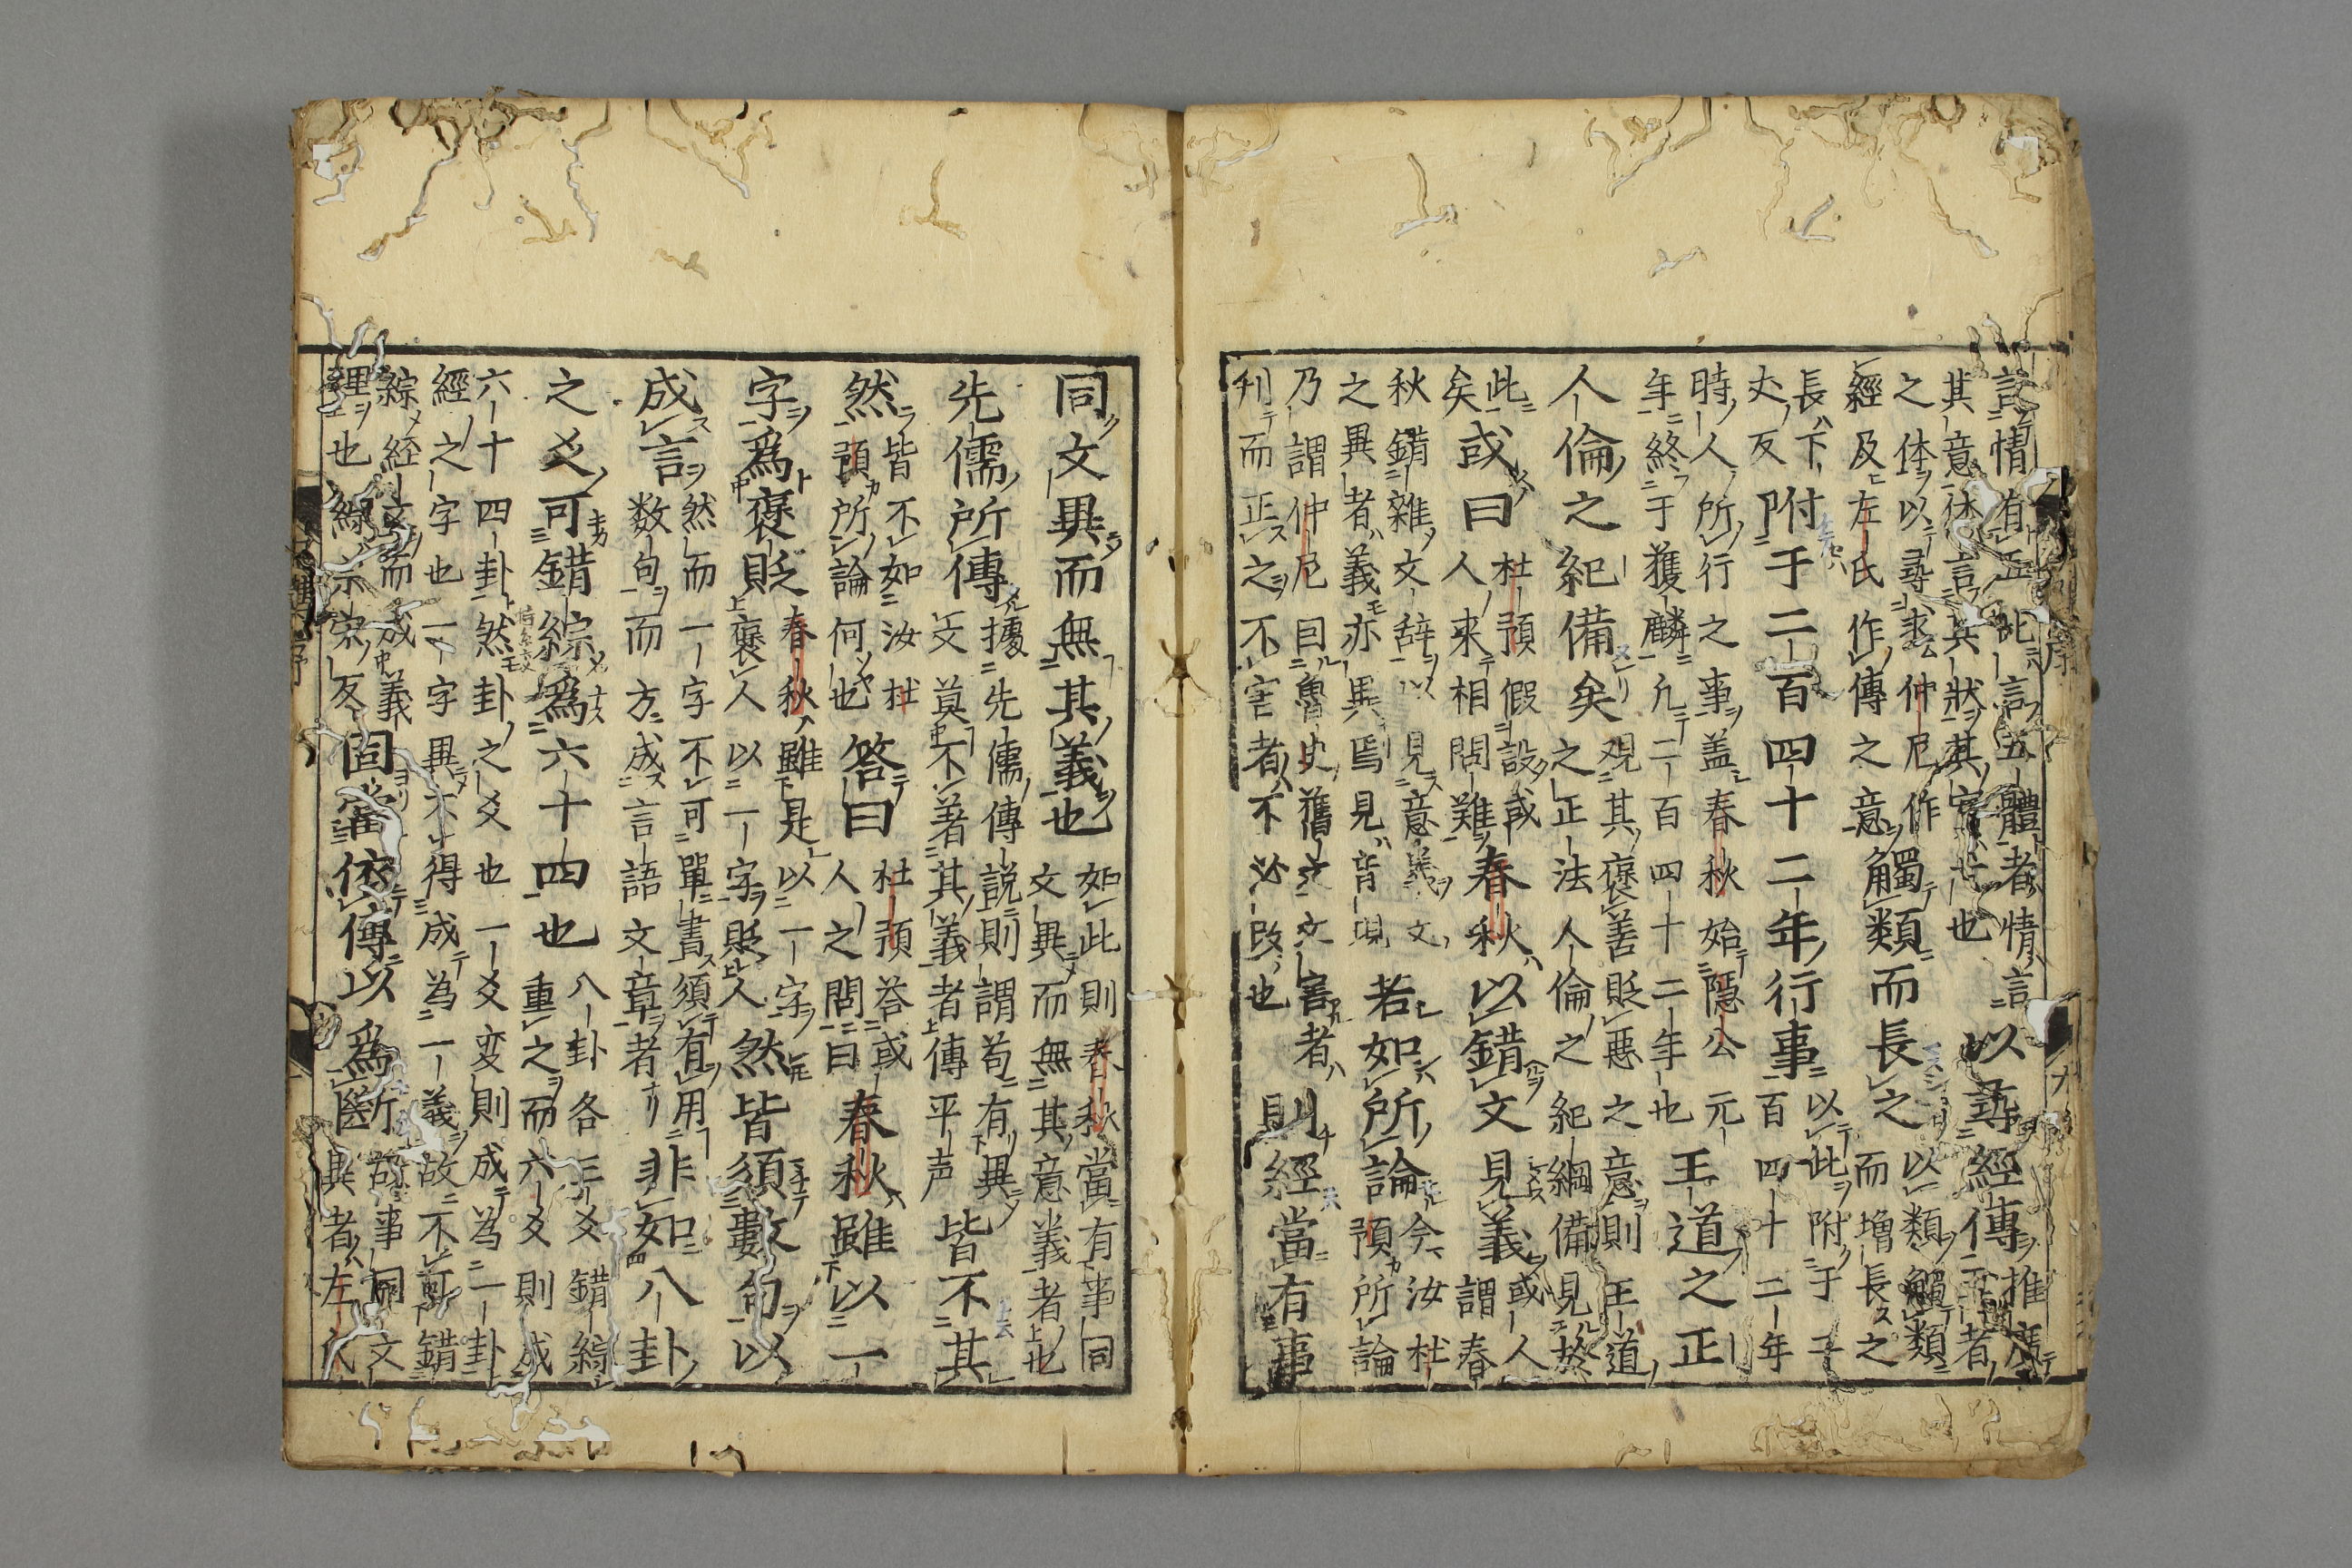 説情有五此言五體者情言
其意体言其狀其實也
以尋經傳
推廣
者
之体以尋求仲尼作
經及左氏作傳之意
觸類而長之
以類觸類
而増長之
長下
丈反
附于二百四十二年行事
以此附于二
百四十二年
時人所行之事盖春秋始隱公元
年終于獲麟凢二百四十二年也
王道之正
人倫之紀備矣
观其褒善貶惡之意則王道
之正法人倫之紀綱備見於
此
矣
或曰
杜預假設或
人来相問難
春秋以錯文見義
或人
謂春
秋錯雜文辞以見意義文
之異者義亦異焉見音現
若如所論
今汝杜
預所論
乃謂仲尼因魯史舊之文害者
刊而正之不害者不必改也
則經當有事
同文異而無其義也
如此則春秋當有事同
文異而無其意義者也
先儒所傳
據先儒傳説則謂苟有異
文莫不著其義者傳平声
皆不其
然
皆不如汝杜
預所論何也
答曰
杜預荅或
人之問曰
春秋雖以一
字爲褒貶
春秋雖是以一字
褒人以一字貶人
然皆須數句以
成言
然而一字不可單書須有用
数句而方成言語文章者
非如八卦
之爻可錯綜爲六十四也
八卦各三爻錯綜
重之而六爻則成
六十四卦然卦之爻也一爻変則成為一卦
經之一字也一字異不得成為一義故不可錯
綜経文而成義
理也綜宗反
固當依傳以爲斷
故事同文
異者左氏